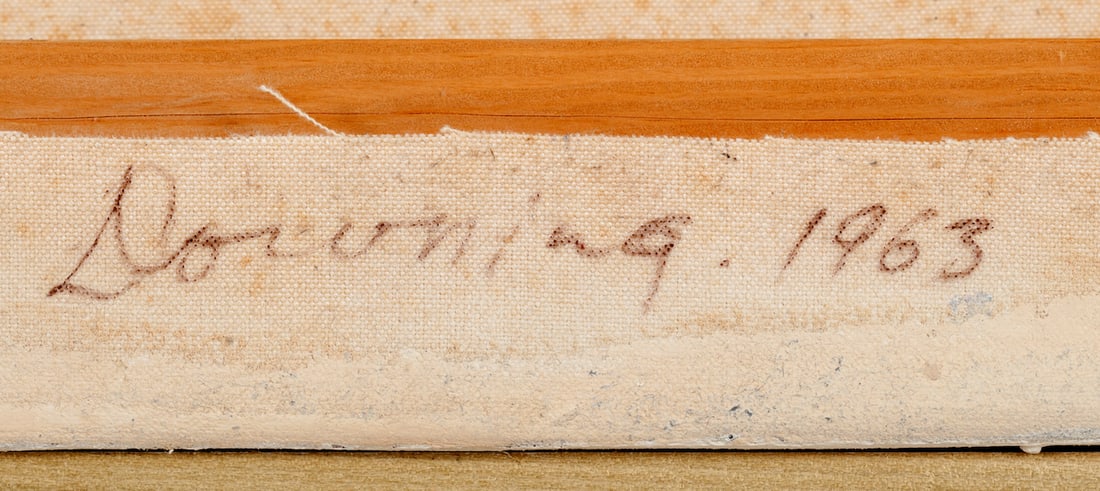 Downing. 1963